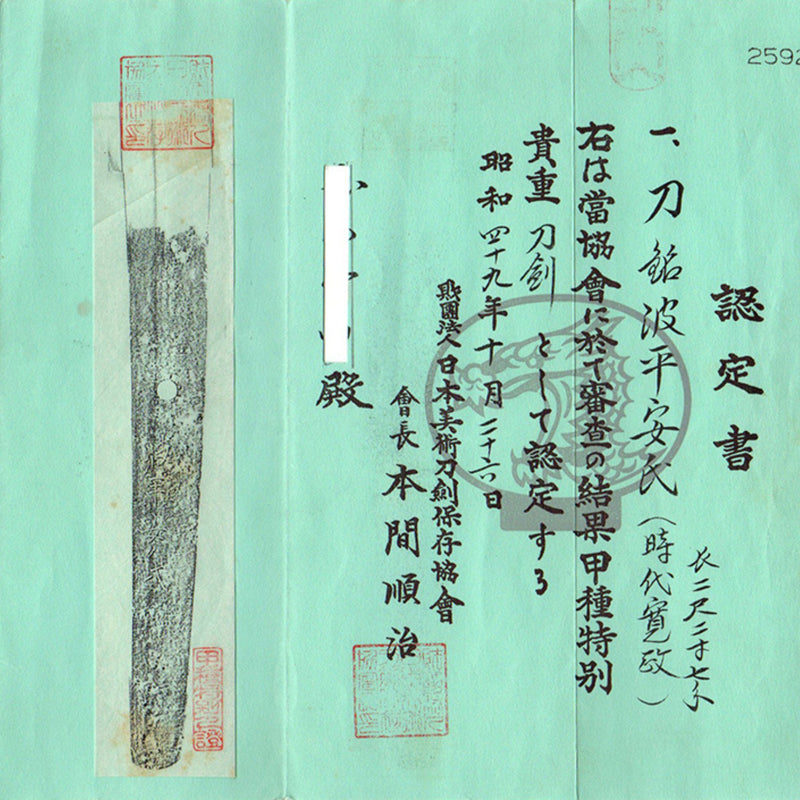 2592
認定書
一、刀 銘波平安氏(時代寛政)
長二尺二寸七分
右は當協會に於て審査の結果甲種特別
貴重 刀劍 として認定する
昭和四十九年十月二十六日
財團法人日本美術刀劍保存協會
會長 本間順治
殿
甲種特別之證